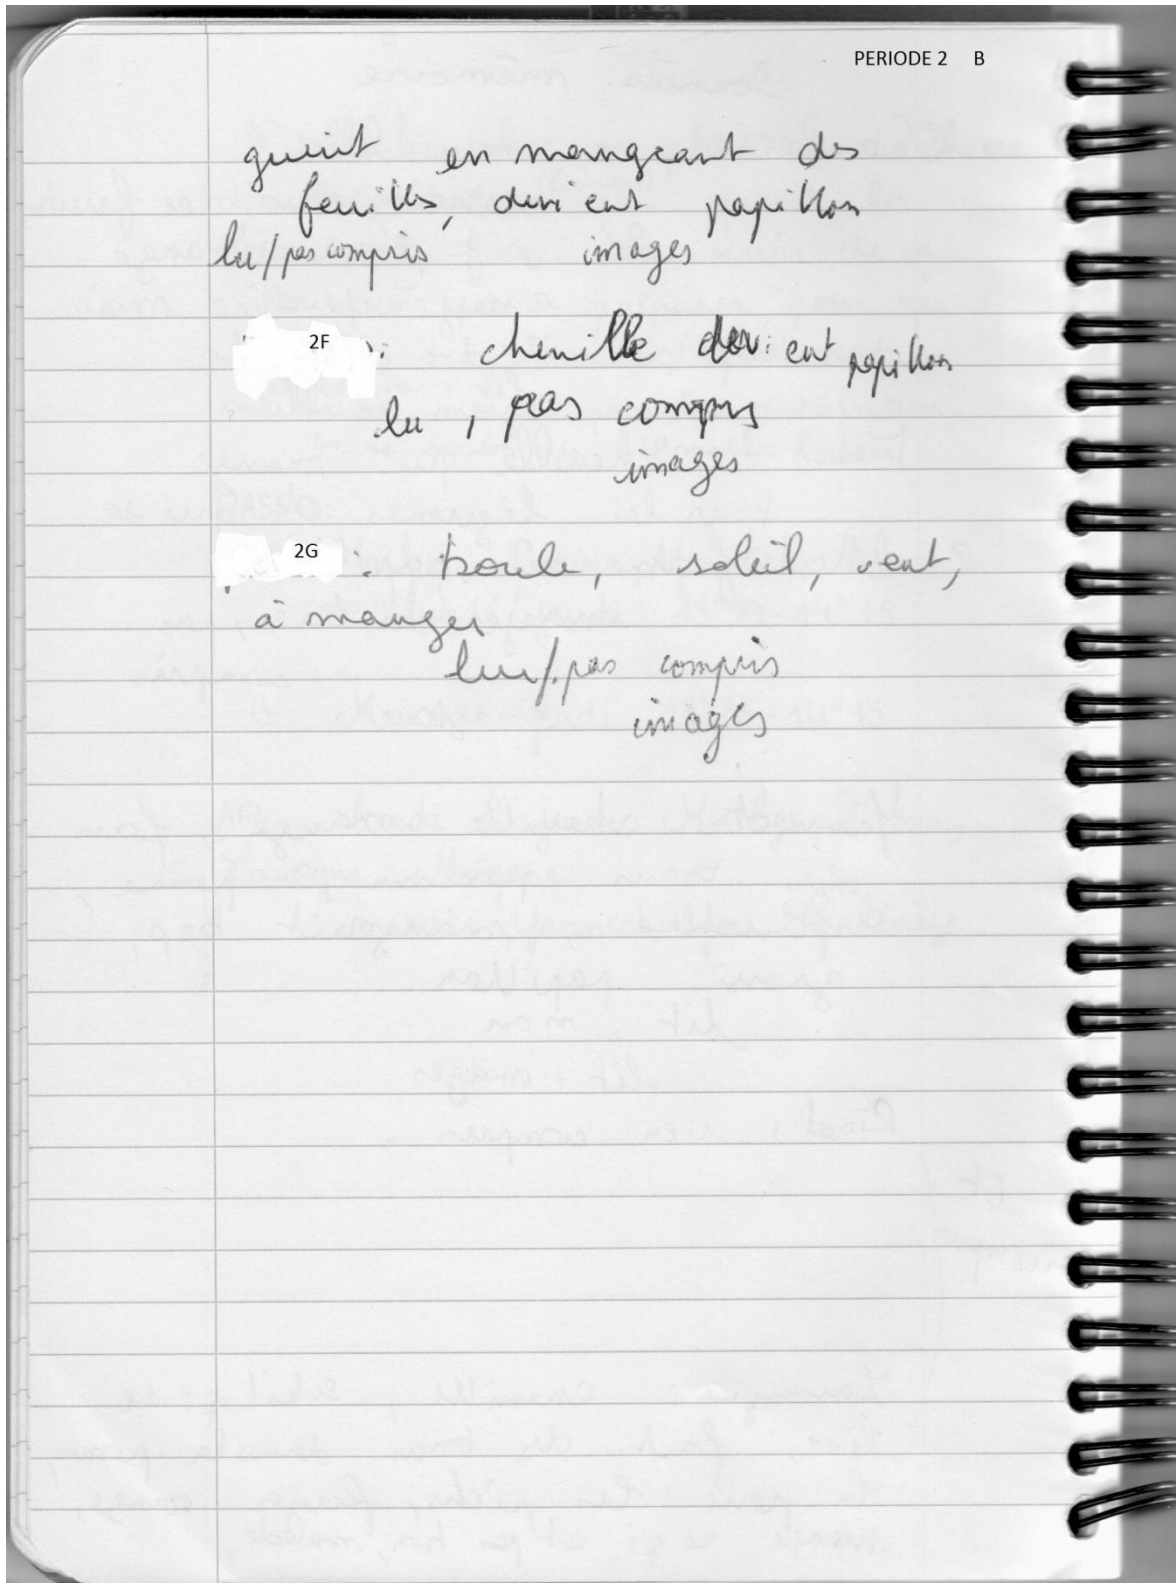 PERIODE 2 B
guérit en mangeant des
feuilles, devient papillon
lu/pas compris images
2F : chenille devient papillon
lu, pas compris
images
2G : boule, soleil, vent,
à manger
lu/pas compris
images